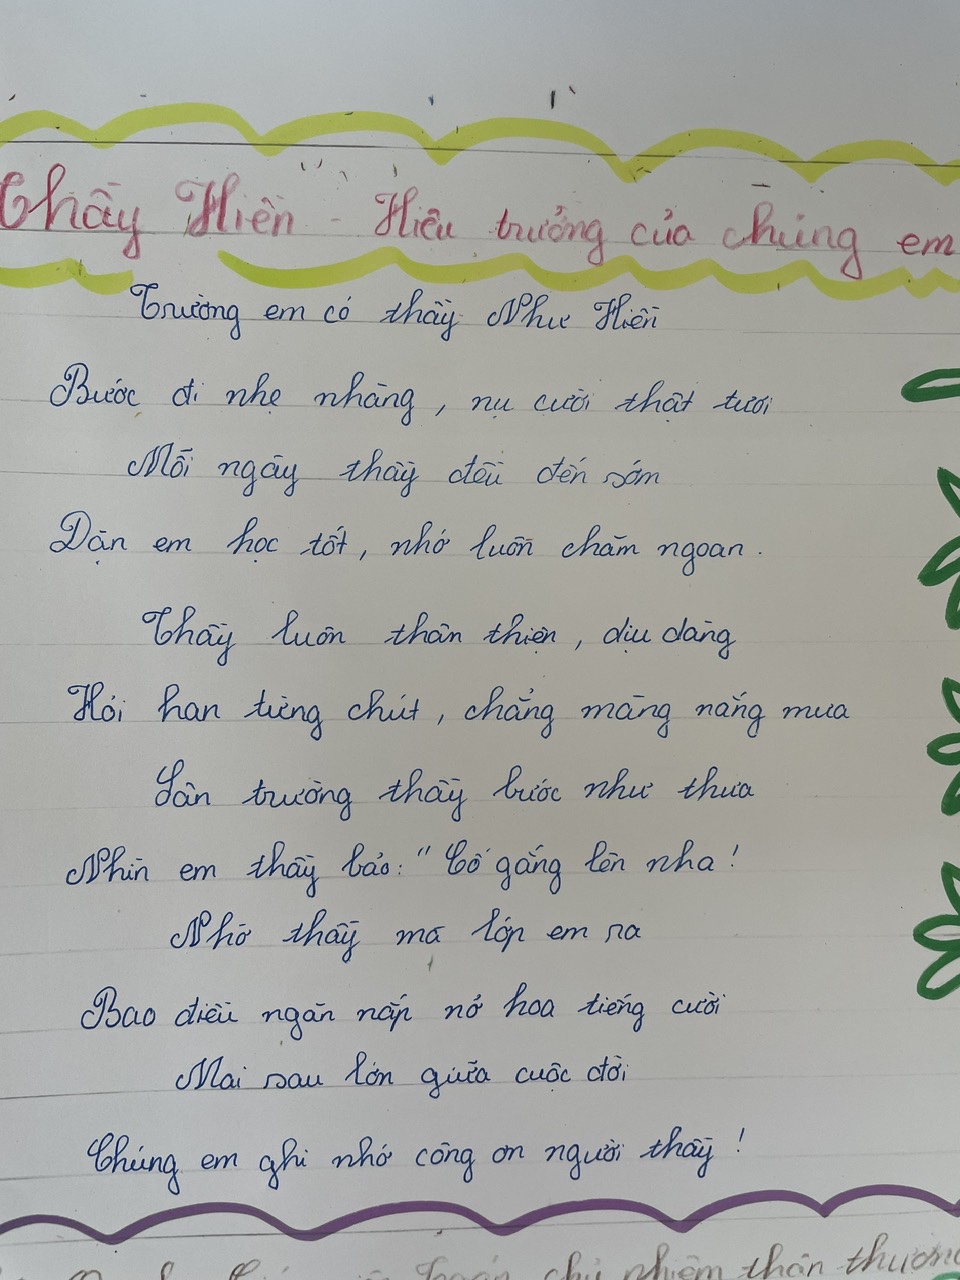 Thầy Hiền - Hiệu trưởng của chúng em
Trường em có thầy Như Hiền
Bước đi nhẹ nhàng, nụ cười thật tươi
Mỗi ngày thầy đều đến sớm
Dặn em học tốt, nhớ luôn chăm ngoan.
Thầy luôn thân thiện, dịu dàng
Hỏi han từng chút, chẳng màng nắng mưa
Sân trường thầy bước như thưa
Nhìn em thầy bảo: "Cố gắng lên nha!
Nhờ thầy mà lớp em ra
Bao điều ngăn nắp nở hoa tiếng cười
Mai sau lớn giữa cuộc đời
Chúng em ghi nhớ công ơn người thầy!
chủ nhiệm thân thương